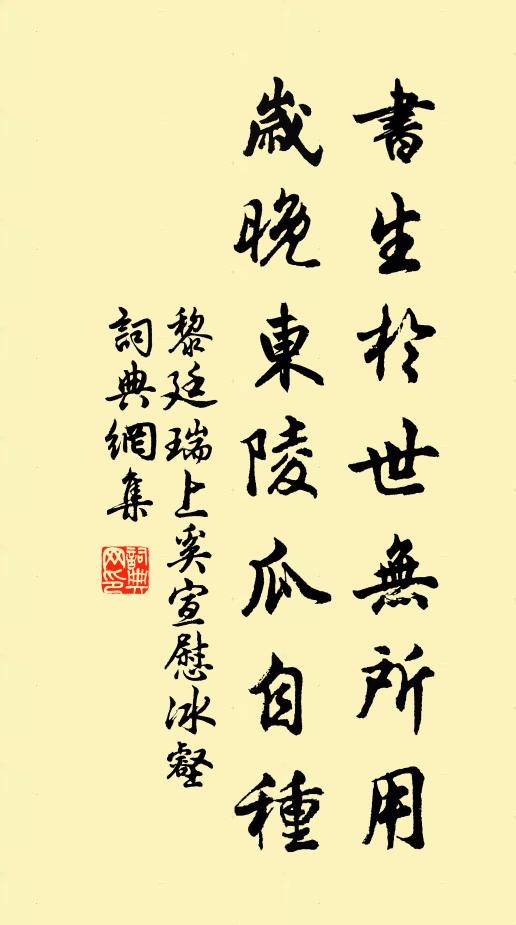 書生於世無所用
歲晚東陵瓜自種
黎廷瑞上奚宣慰冰壑
詞典網集
詞典
网印